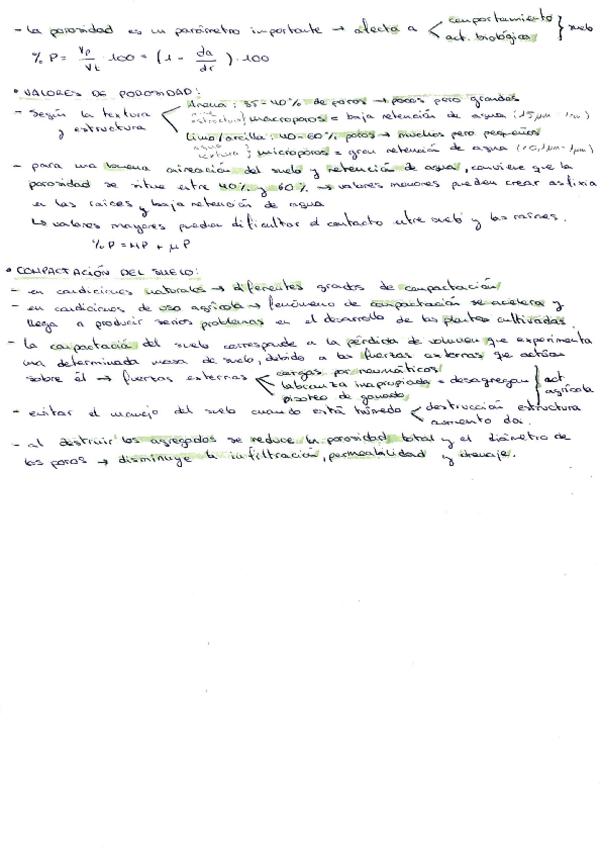 - La porosidad es un parámetro importante → afecta a < comportamiento / act. biológica } suelo
% P = Vp/Vt · 100 = (1 - da/dr) · 100
• VALORES DE POROSIDAD:
- Según la textura y estructura < Arena: 35-40% de poros → pocos pero grandes
macroporos = baja retención de agua
Limo/arcilla: 40-60% poros → muchos pero pequeños
microporos = gran retención de agua
- para una buena aireación del suelo y retención de agua, conviene que la
porosidad se situe entre 40% y 60% → valores menores pueden crear asfixia
en las raices y baja retención de agua
↳ valores mayores pueden dificultar el contacto entre suelo y las raices.
% P = MP + μP
• COMPACTACIÓN DEL SUELO:
- en condiciones naturales → diferentes grados de compactación
- en condiciones de uso agrícola → fenómeno de compactación se acelera y
llega a producir serios problemas en el desarrollo de las plantas cultivadas.
- la compactación del suelo corresponde a la pérdida de volumen que experimenta
una determinada masa de suelo, debido a las fuerzas externas que actúan
sobre él → fuerzas externas < cargas por neumáticos / labranza inapropiada = desagregan / pisoteo de ganado } act. agrícola
- evitar el manejo del suelo cuando está húmedo < destrucción estructura / aumento da.
- al destruir los agregados se reduce la porosidad total y el diámetro de
los poros → disminuye la infiltración, permeabilidad y drenaje.